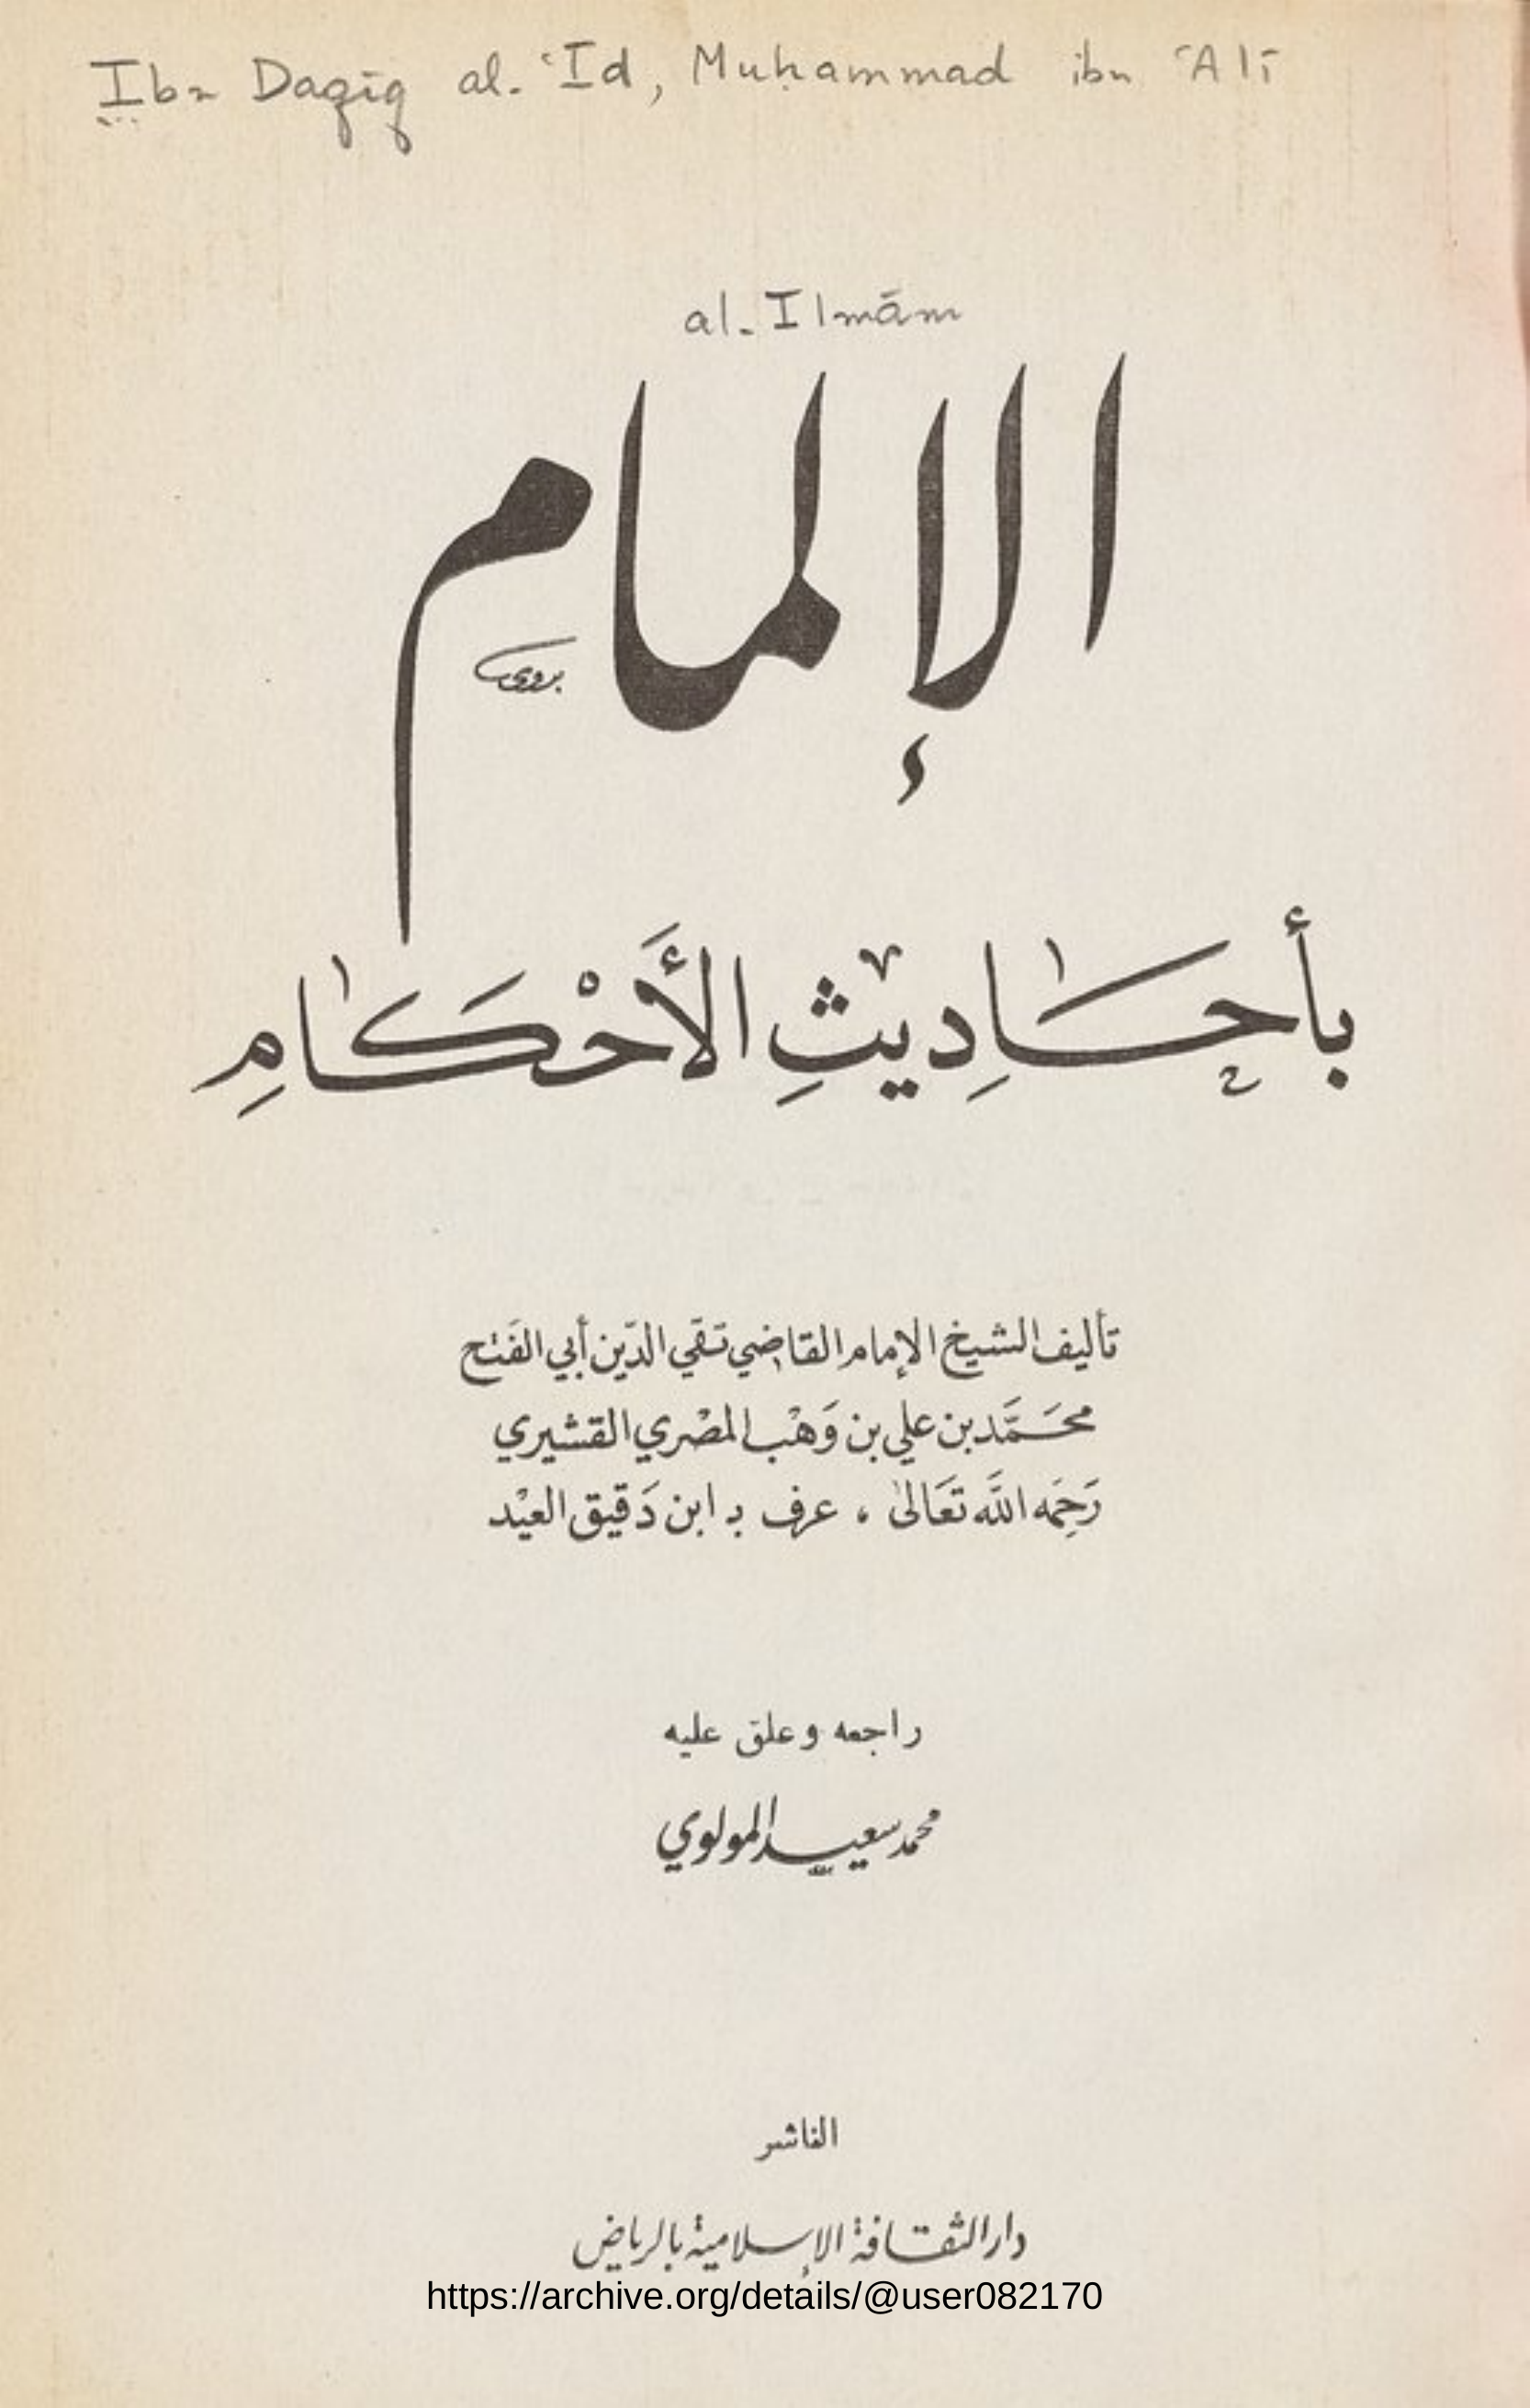 Ibn Daqīq al-ʿĪd, Muḥammad ibn ʿAlī
al-Ilmām
الإلمام
بأحَاديثِ الأَحْكَامِ
تأليف الشيخ الإمام القاضي تقي الدّين أبي الفَتح
محَمَّد بن علي بن وَهْب المصْري القشيري
رَحِمَه الله تعَالىٰ ، عرف بـ ابن دَقيق العيْد
راجعه وعلق عليه
محمد سعيد المولوي
الناشر
دار الثقافة الإسلامية بالرياض
https://archive.org/details/@user082170